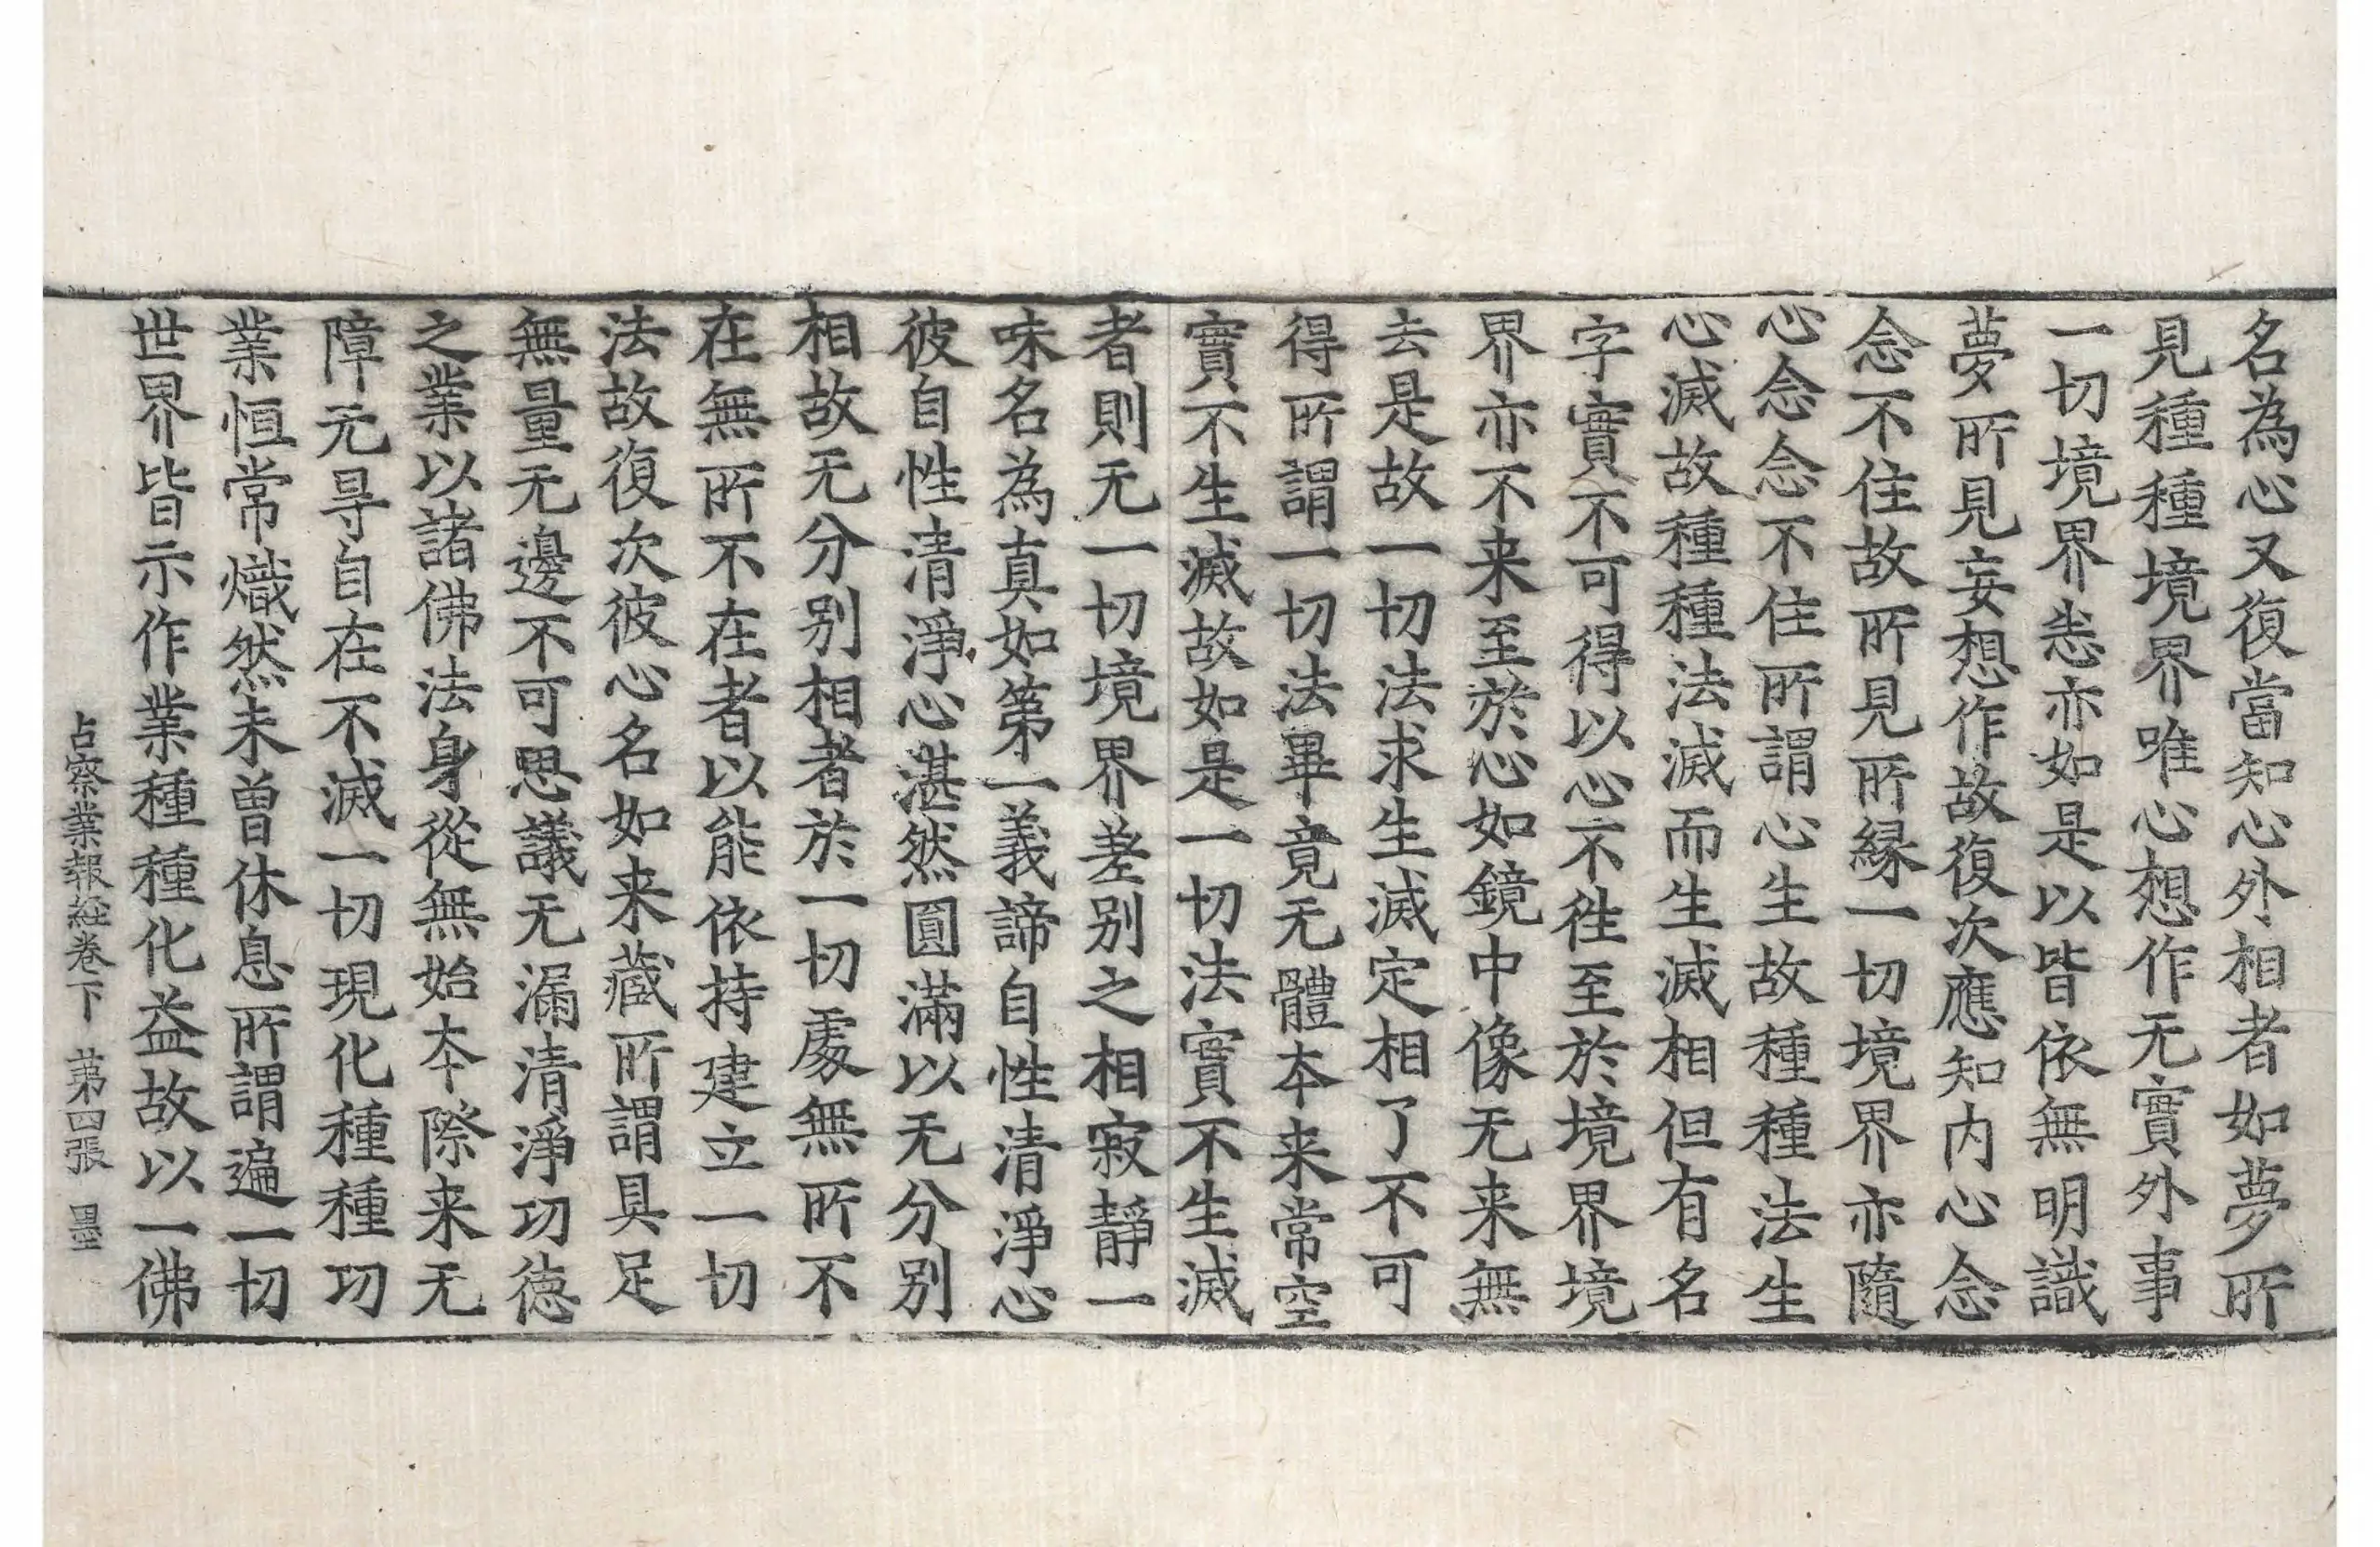 名為心又復當知心外相者如夢所
見種種境界唯心想作无實外事
一切境界悉亦如是以皆依無明識
夢所見妄想作故復次應知内心念
念不住故所見所緣一切境界亦隨
心念念不住所謂心生故種種法生
心滅故種種法滅而生滅相但有名
字實不可得以心不徃至於境界境
界亦不来至於心如鏡中像无来無
去是故一切法求生滅定相了不可
得所謂一切法畢竟无體本来常空
實不生滅故如是一切法實不生滅
者則无一切境界差别之相寂靜一
味名為真如第一義諦自性清淨心
彼自性清淨心湛然圓滿以无分别
相故无分别相者於一切處無所不
在無所不在者以能依持建立一切
法故復次彼心名如来藏所謂具足
無量无邊不可思議无漏清淨功德
之業以諸佛法身從無始本際来无
障无㝵自在不滅一切現化種種功
業恒常熾然未曽休息所謂遍一切
世界皆示作業種種化益故以一佛
占察業報經卷下 第四張 墨